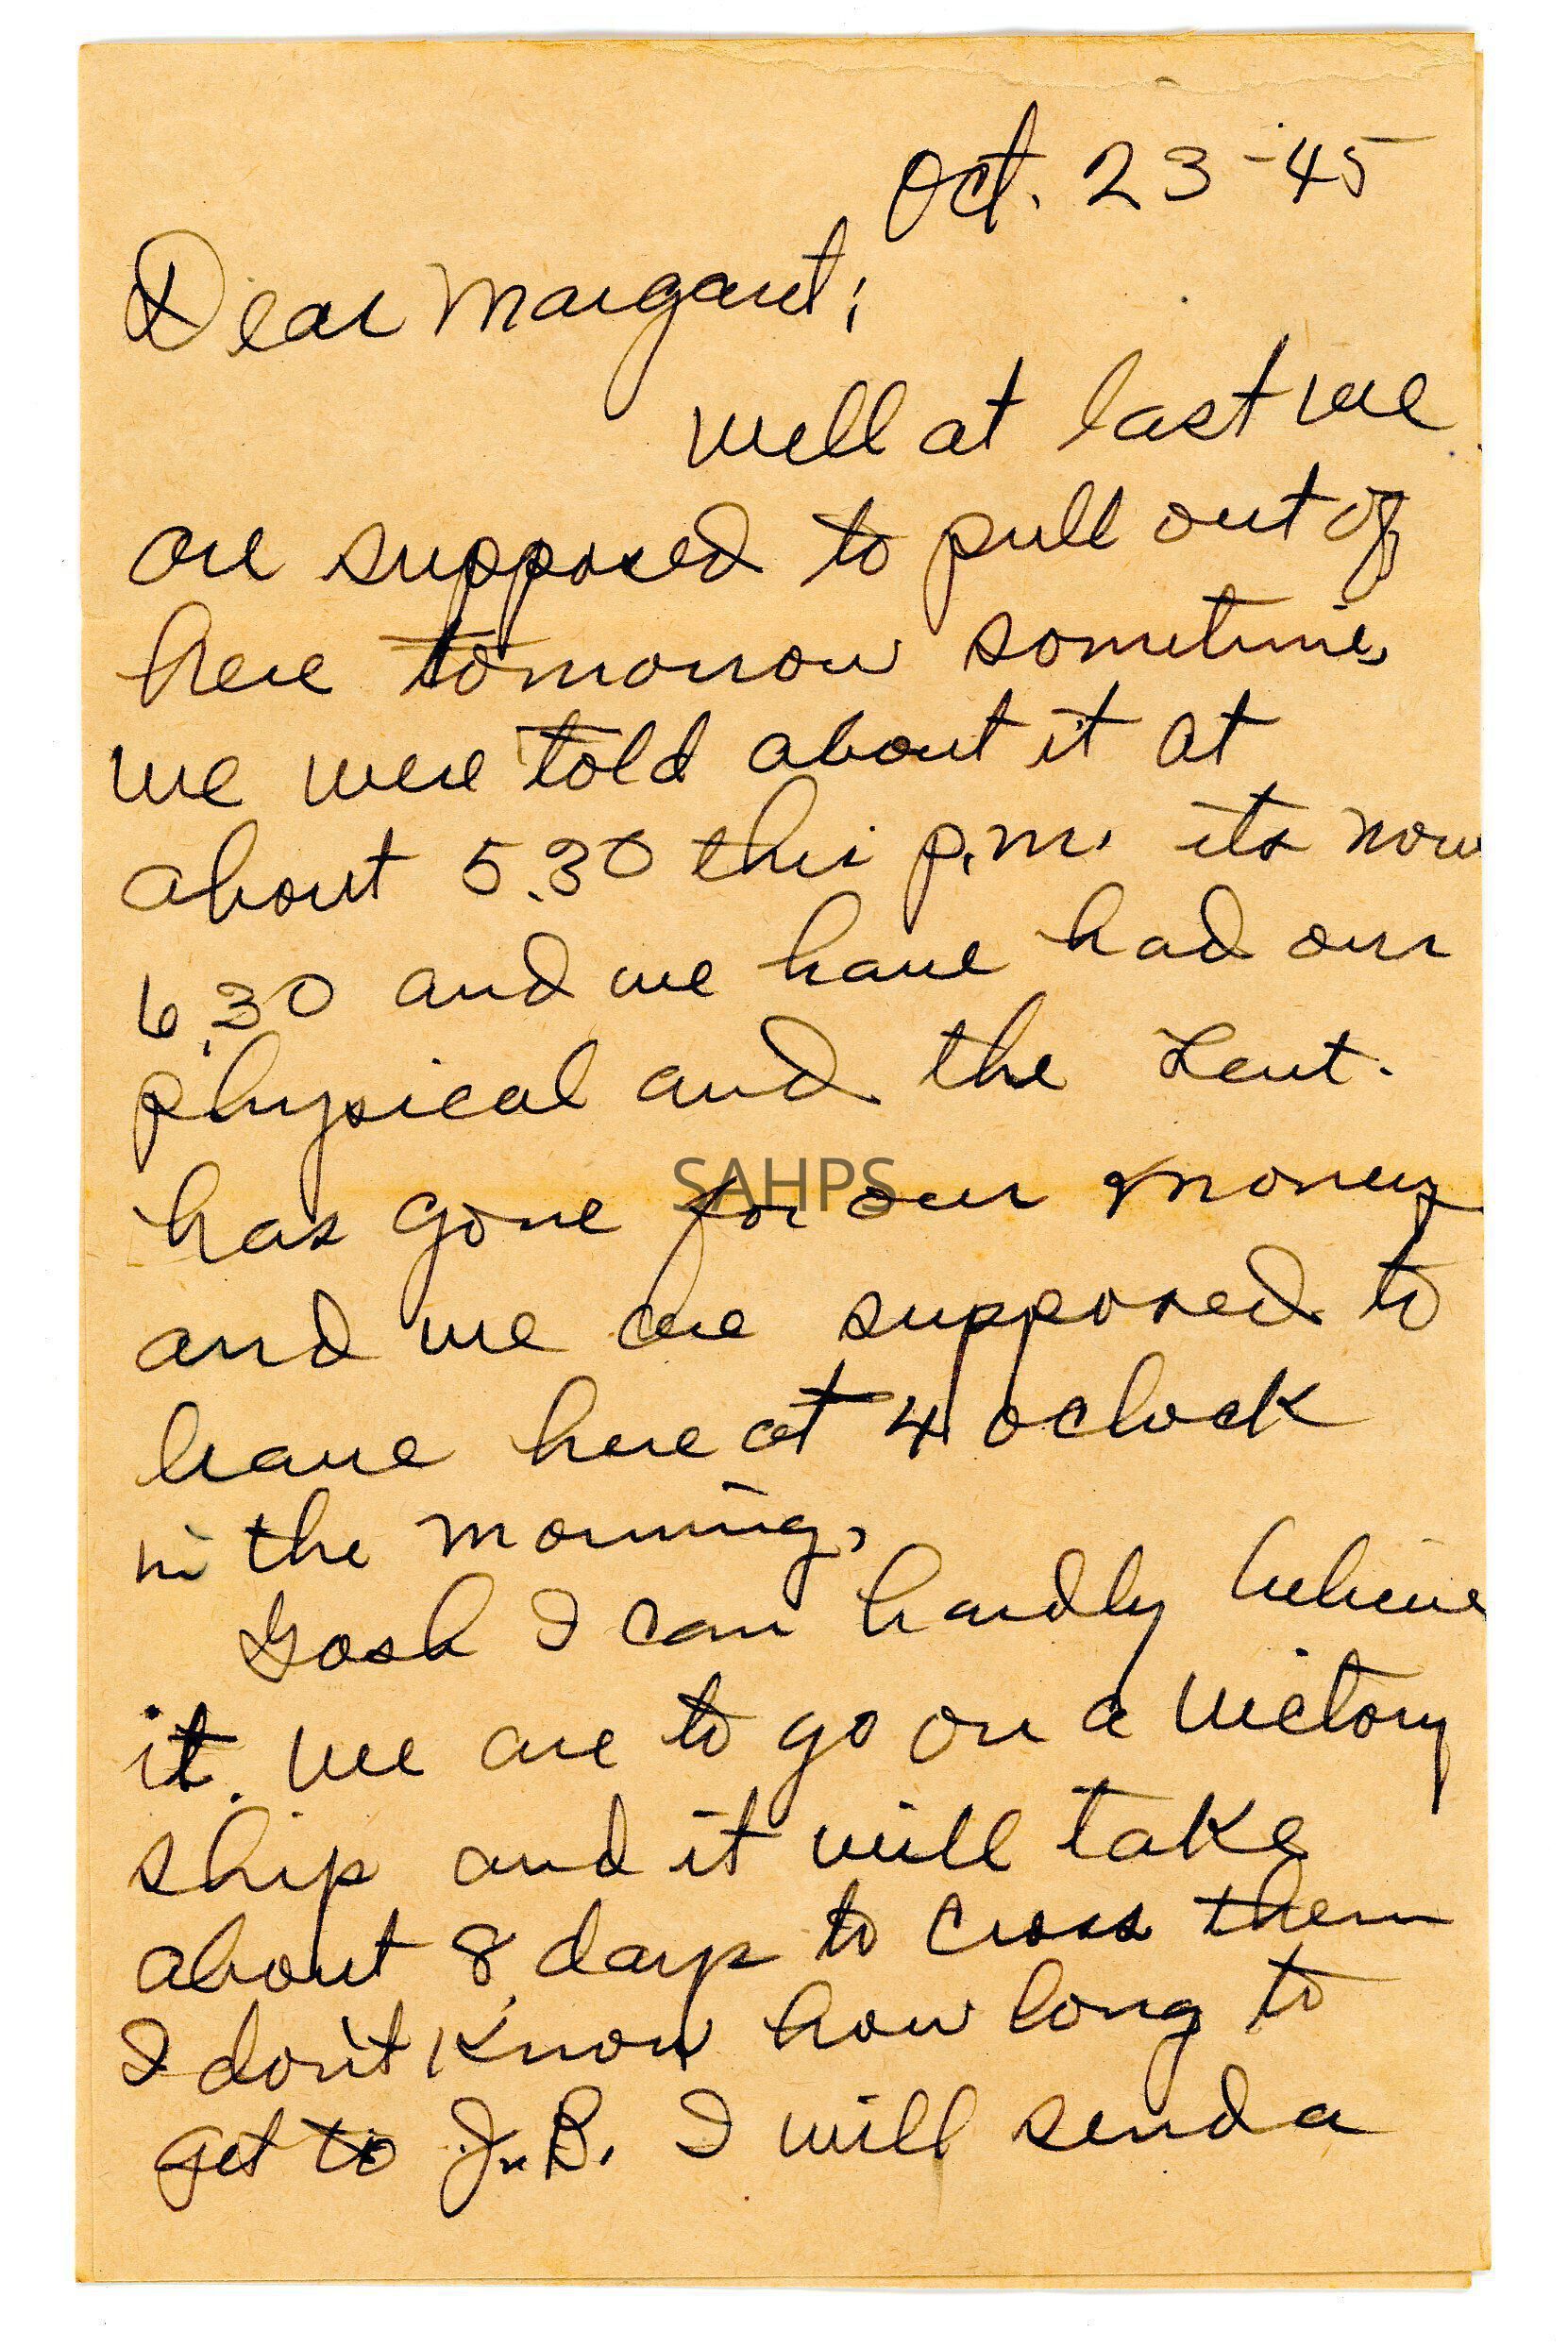 Oct. 23-45
Dear Margaret;
Well at last we
are supposed to pull out of
here tomorrow sometime,
we were told about it at
about 5.30 this p.m. its now
6.30 and we have had our
physical and the Leut.
SAHPS
has gone for our money
and we are supposed to
leave here at 4 oclock
in the morning,
Gosh I can hardly believe
it. We are to go on a Victory
ship and it will take
about 8 days to cross then
I don't know how long to
get to J.B. I will send a